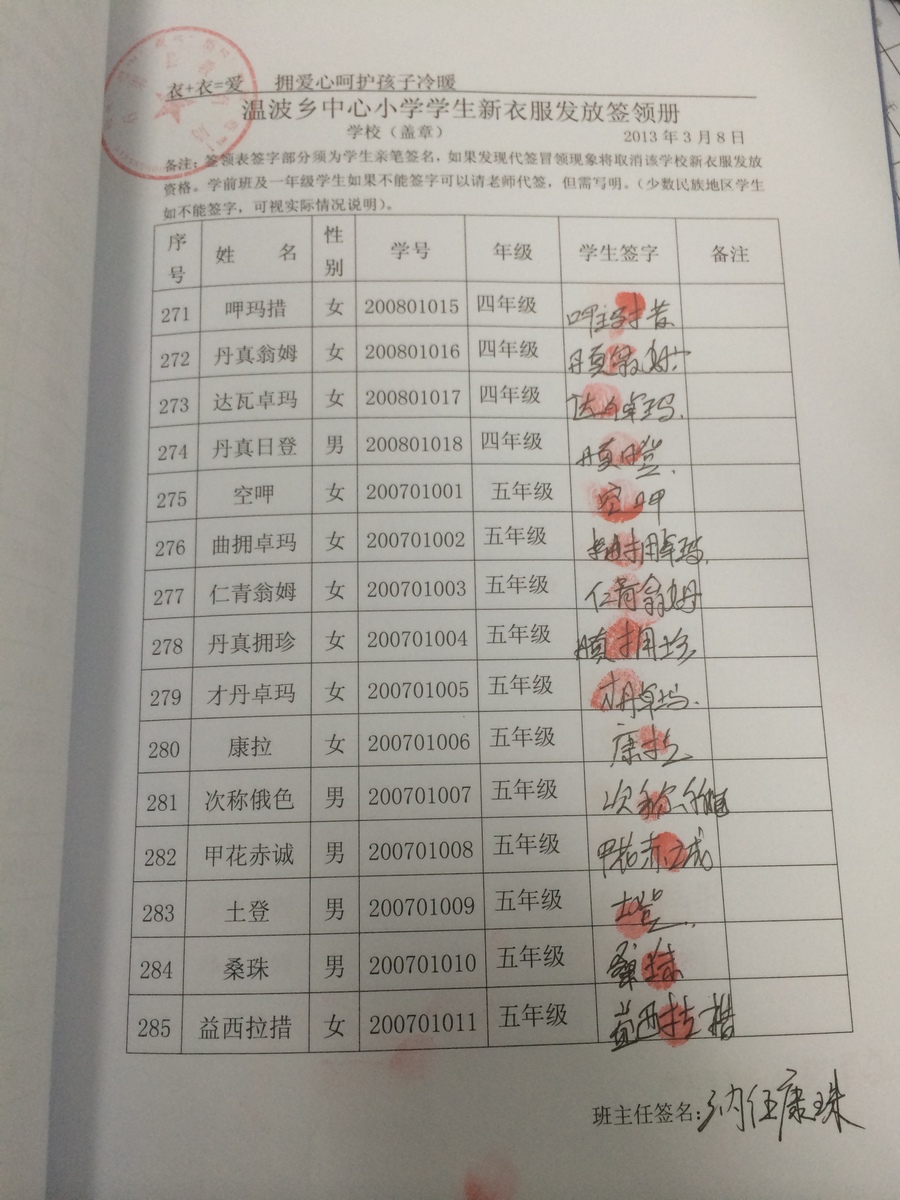 衣+衣=爱 拥爱心呵护孩子冷暖
温波乡中心小学学生新衣服发放签领册
学校（盖章） 2013年3月8日
备注：签领表签字部分须为学生亲笔签名，如果发现代签冒领现象将取消该学校新衣服发放
资格。学前班及一年级学生如果不能签字可以请老师代签，但需写明。（少数民族地区学生
如不能签字，可视实际情况说明）。
序号 姓 名 性别 学号 年级 学生签字 备注
271 呷玛措 女 200801015 四年级
272 丹真翁姆 女 200801016 四年级 丹真翁姆
273 达瓦卓玛 女 200801017 四年级 达瓦卓玛
274 丹真日登 男 200801018 四年级 丹真日登
275 空呷 女 200701001 五年级 空呷
276 曲拥卓玛 女 200701002 五年级 曲拥卓玛
277 仁青翁姆 女 200701003 五年级 仁青翁姆
278 丹真拥珍 女 200701004 五年级 丹真拥珍
279 才丹卓玛 女 200701005 五年级 才丹卓玛
280 康拉 女 200701006 五年级 康拉
281 次称俄色 男 200701007 五年级 次称俄色
282 甲花赤诚 男 200701008 五年级 甲花赤诚
283 土登 男 200701009 五年级 土登
284 桑珠 男 200701010 五年级 桑珠
285 益西拉措 女 200701011 五年级 益西拉措
班主任签名：纳任康珠